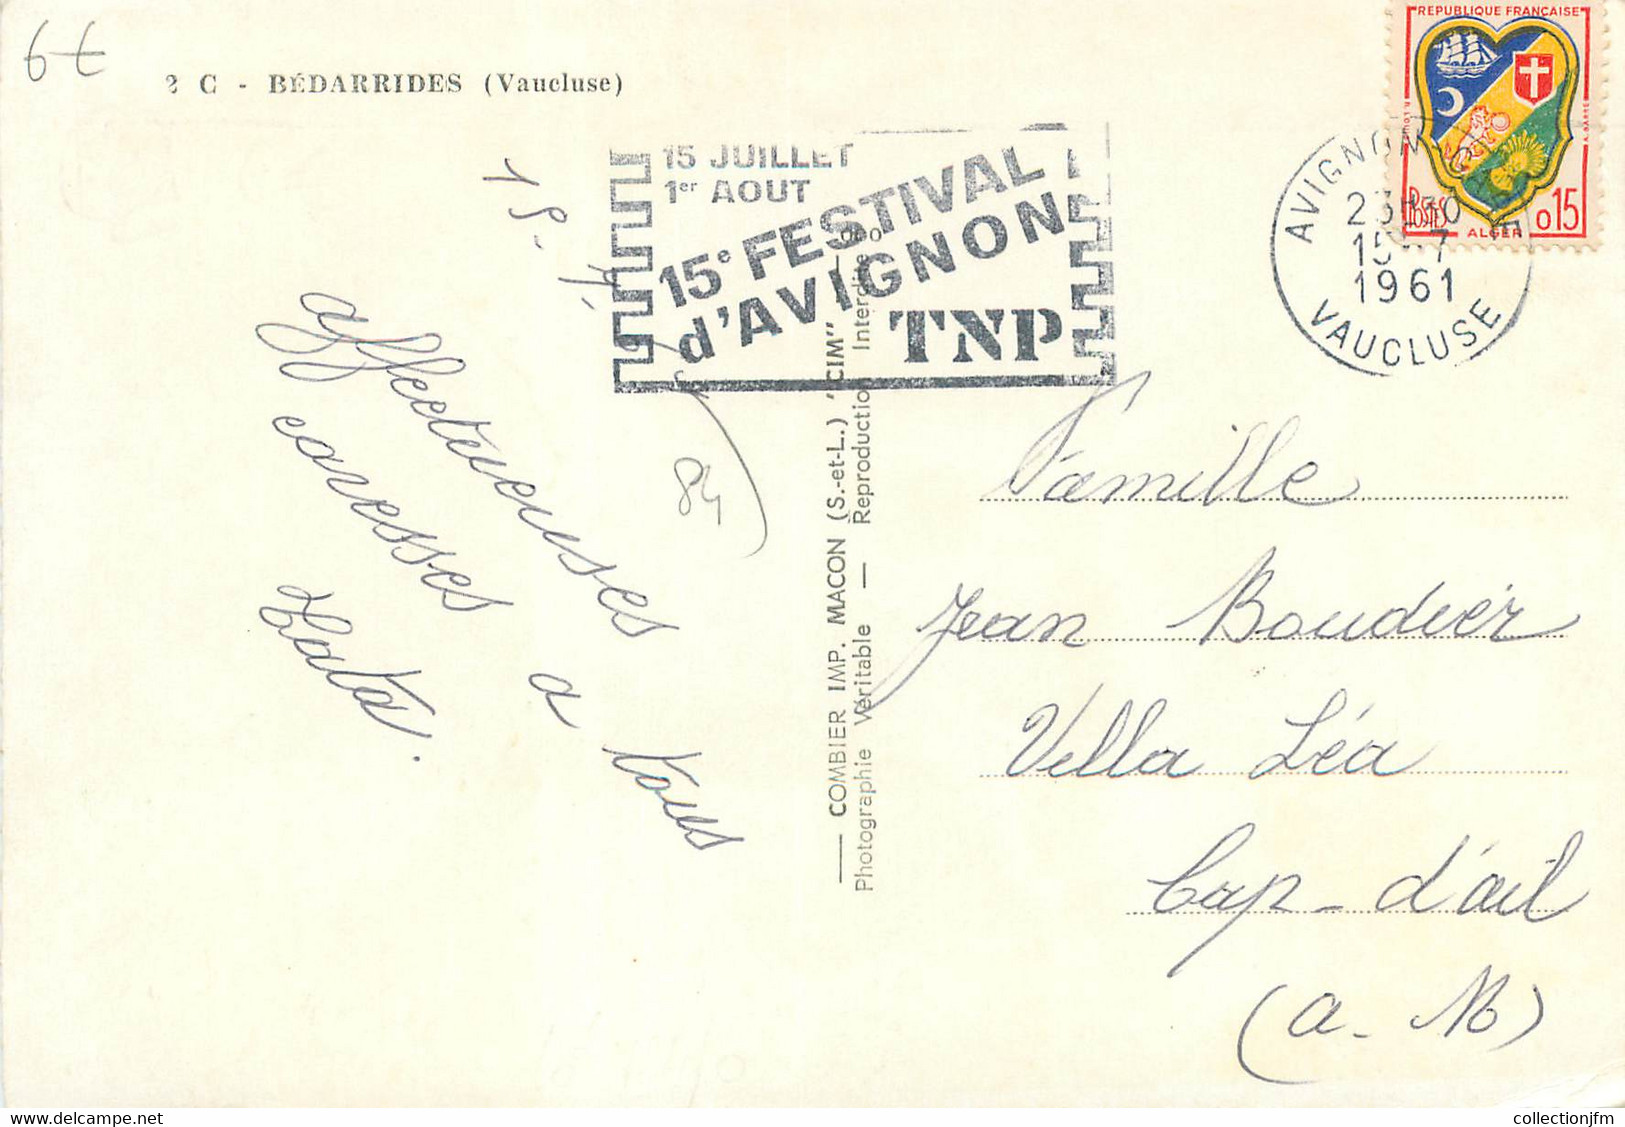 6€
2 C - BÉDARRIDES (Vaucluse)
15 JUILLET
1er AOUT
15e FESTIVAL
d'AVIGNON
TNP
RÉPUBLIQUE FRANÇAISE
POSTES
0,15
ALGER
AVIGNON
23H30
15 - 7
1961
VAUCLUSE
affectueuses
caresses a tous
84
COMBIER IMP. MACON (S.-et-L.) "CIM"
Photographie Véritable — Reproduction Interdite
Famille
Jean Boudier
Villa Léa
Cap-d'ail
(a. M)
collectionjfm